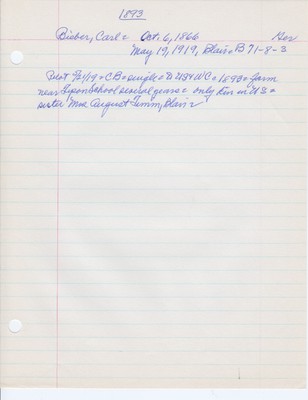 1893
Bieber, Carl = Oct. 6, 1866 Ger
May 19, 1919, Blair = B 71-8-3
Pilot 5/21/19 = CB = single = D 434 WC = 1893 = farm
near Gipson school several years = only kin in U S =
sister Mrs August Timm, Blair =